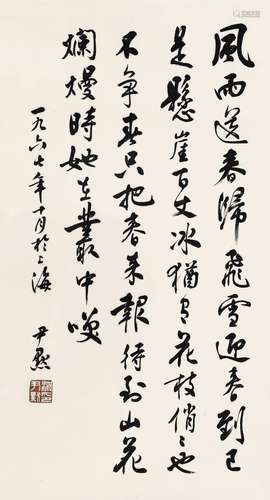 風雨送春歸飛雪迎春到已
是懸崖百丈冰猶有花枝俏〻也
不爭春只把春來報待到山花
爛熳時她在叢中咲
一九六七年十月於上海
尹默